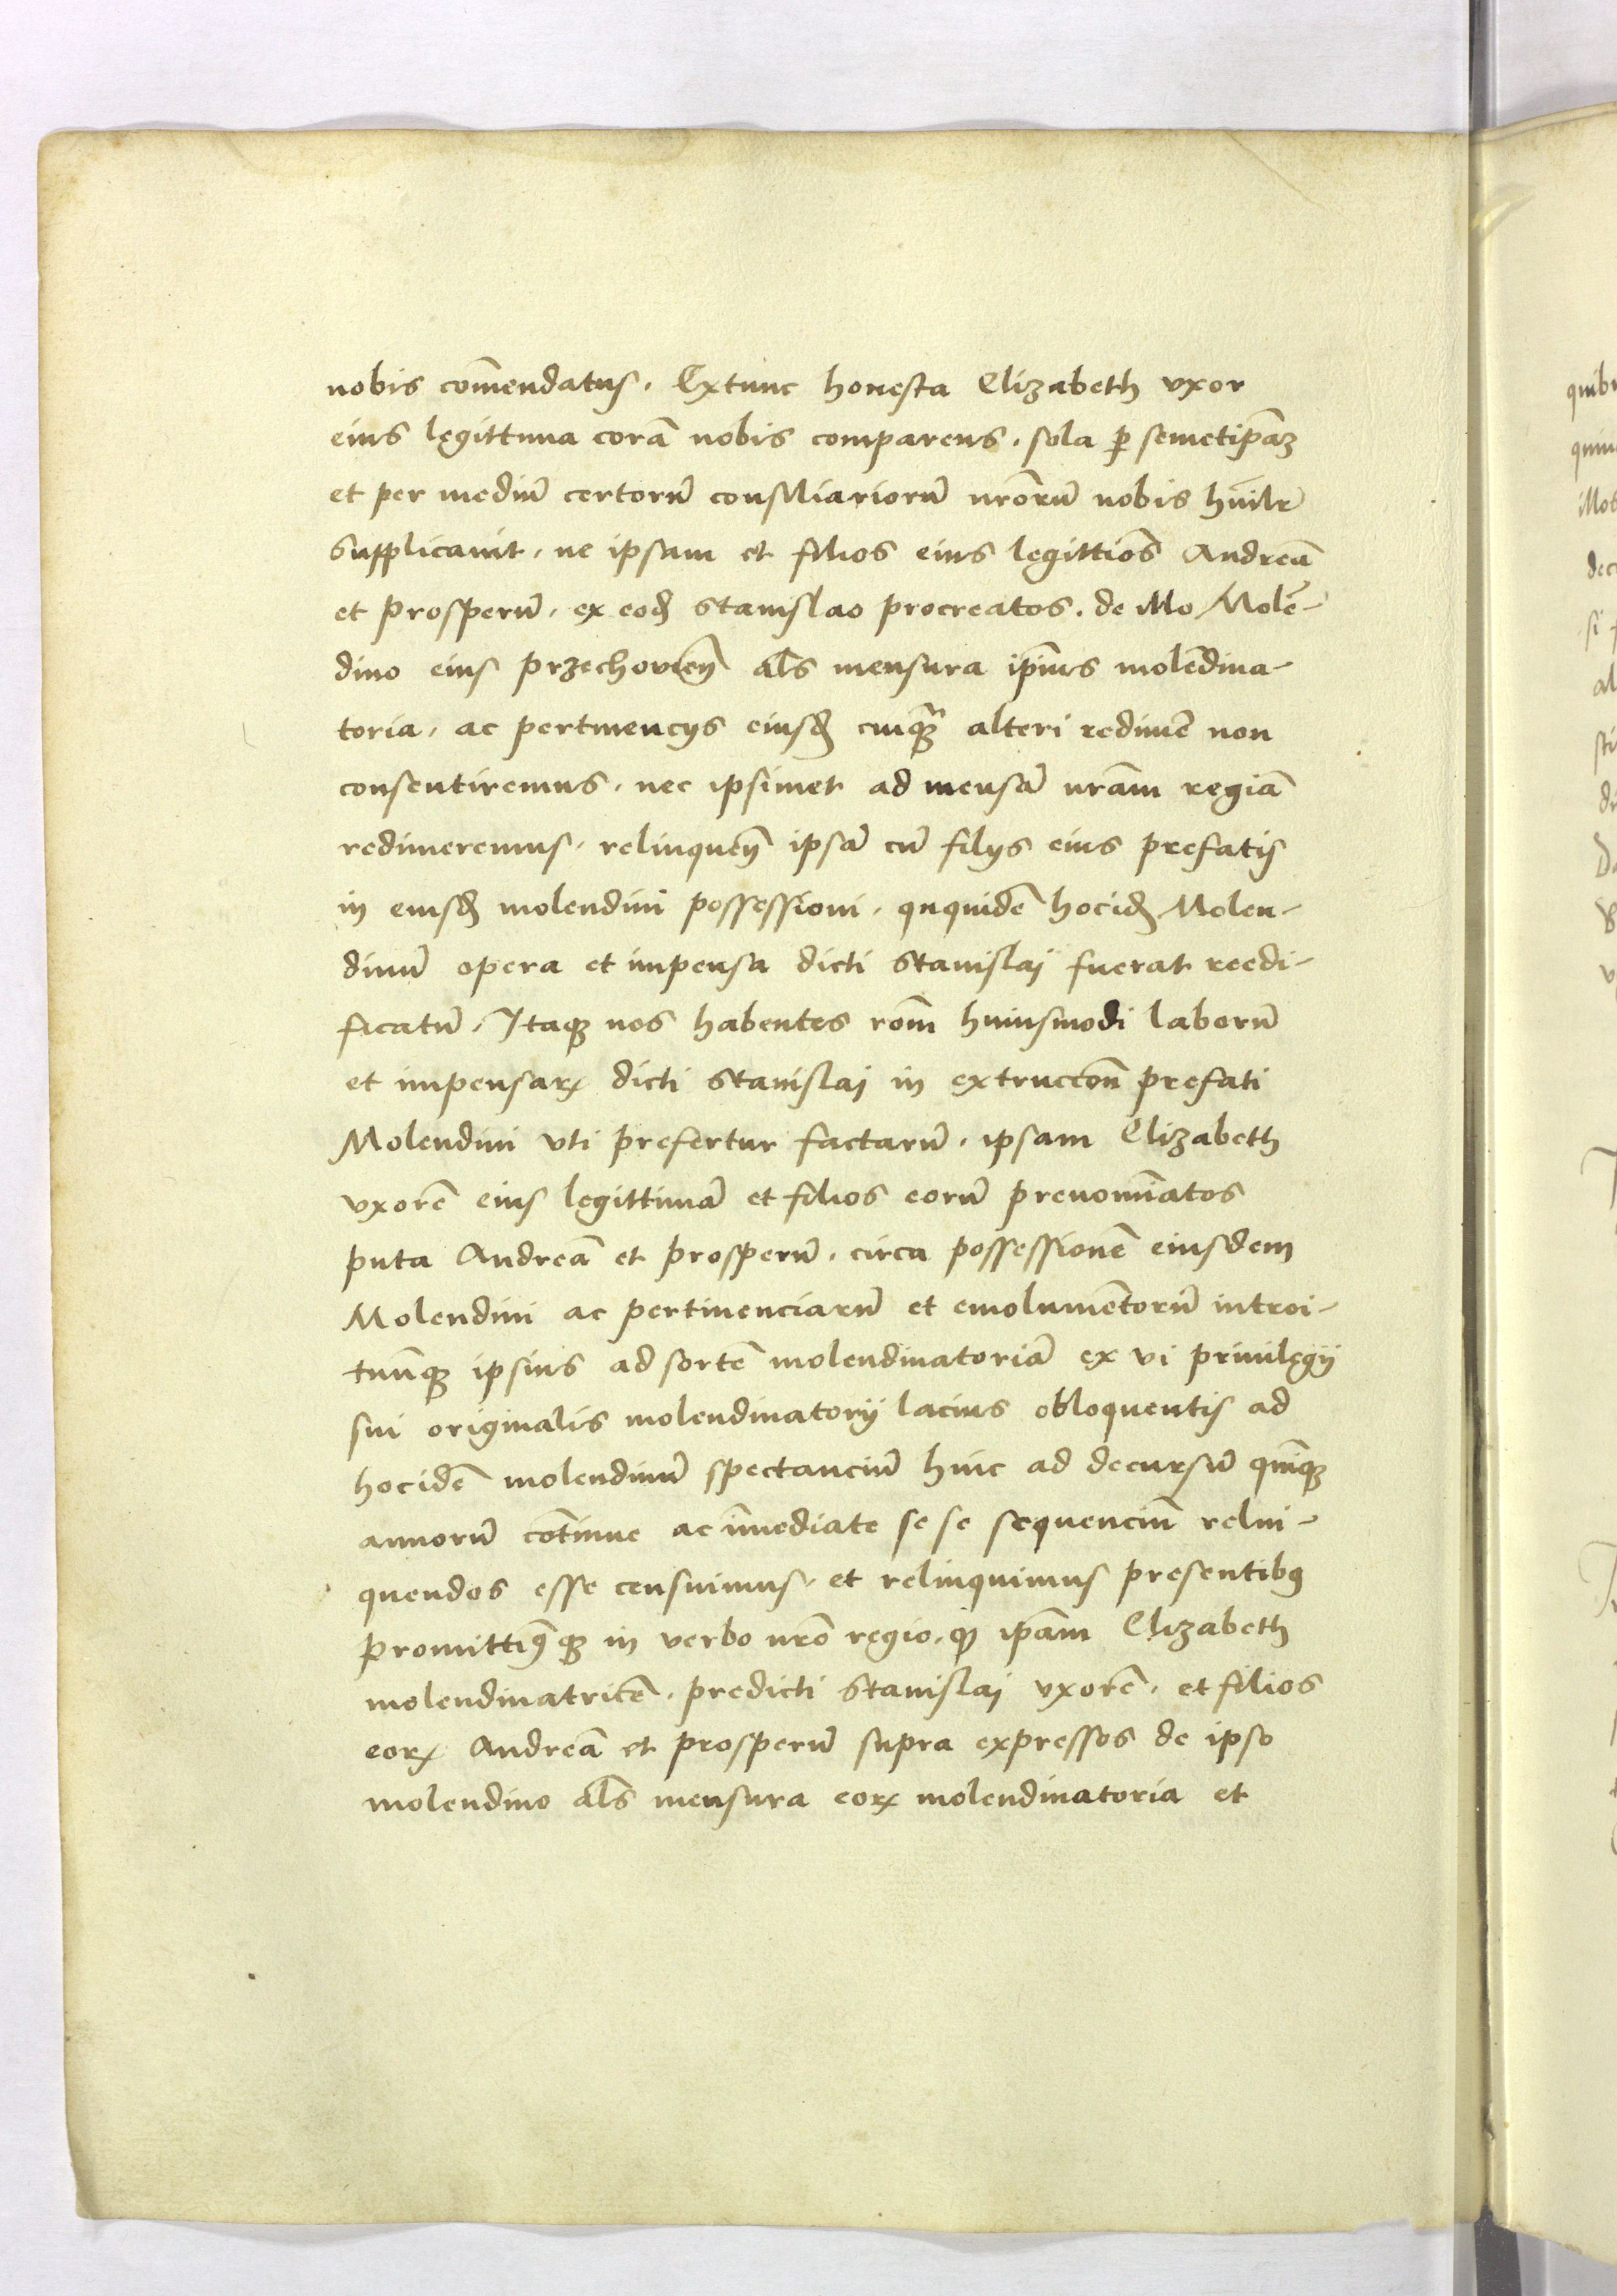 nobis com̄endatus. Extunc honesta Elizabeth vxor
eius legittima corā nobis comparens, sola ꝑ semetip̄aꝫ
et per mediū certorū consiliariorū nr̄orū nobis hūilr̄
supplicauit, ne ipsam et filios eius legittīos Andreā
et Prosperū, ex eod̄ Stanislao procreatos, de illo Molē-
dino eius przechowien̄ al̄s mensura ip̄ius molēdina-
toria, ac pertinencijs eiusd̄ cuiqꝫ alteri redimē non
consentiremus, nec ipsimet ad mensā nr̄am regiā
redimeremus, relinquen̄ ipsā cū filijs eius prefatis
in eiusd̄ molendini possessioni, ququidē hocid̄ Molen-
dinū opera et impensa dicti Stanislaj fuerat reedi-
ficatū, Itaqꝫ nos habentes rōm huiusmodi laborū
et impensarꝝ dicti Stanislaj in extruccōn prefati
Molendini vti prefertur factarū, ipsam Elizabeth
vxorē eius legittimā et filios eorū prenoīatos
puta Andreā et prosperū, circa possessionē eiusdem
Molendini ac pertinenciarū et emolumētorū introi-
tuūqꝫ ipsius ad sortē molendinatoriā ex vi priuilegij
sui originalis molendinatorij lacius obloquentis ad
hocidē molendinū spectanciū hinc ad decursū quīqꝫ
annorū cōtinue ac īmediate se se sequenciū relin-
quendos esse censuimus, et relinquimus presentibꝰ
promittim̄qꝫ in verbo nr̄o regio, qꝫ ip̄am Elizabeth
molendinatricē, predicti Stanislaj vxorē, et filios
eorꝝ Andreā et prosperū supra expressos de ipso
molendino al̄s mensura eorꝝ molendinatoria et